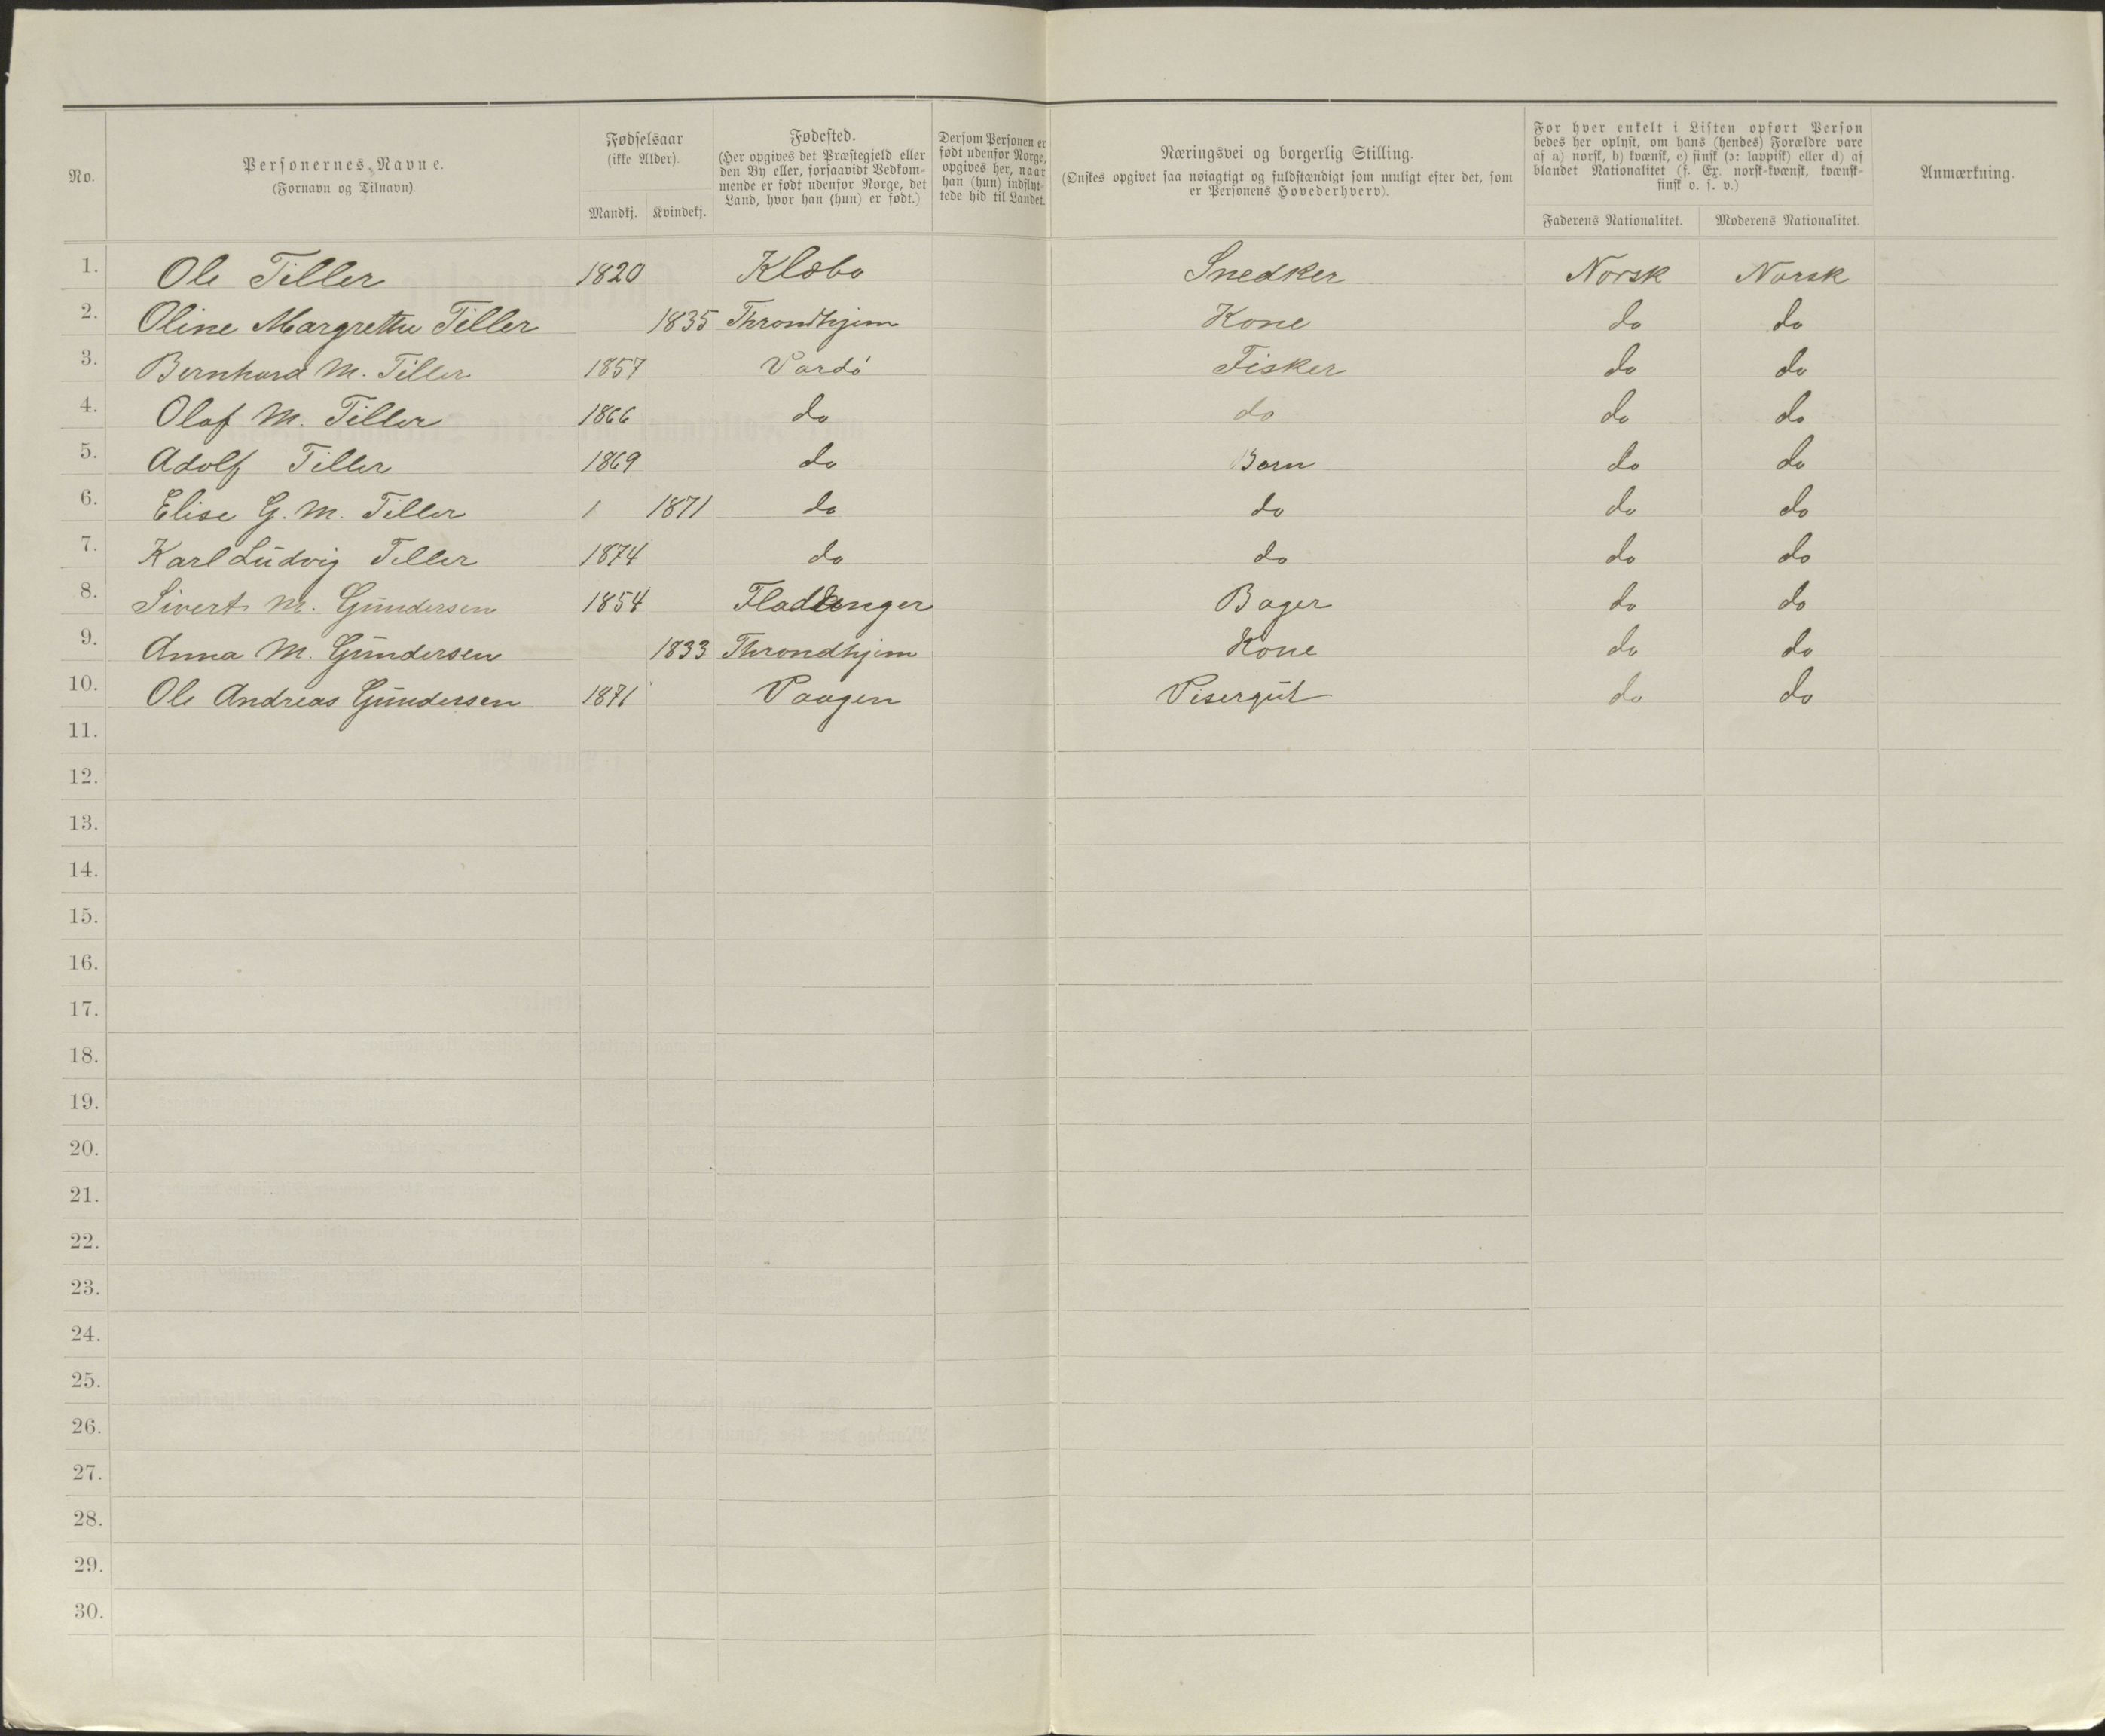 No.
Personernes Navne.
(Fornavn og Tilnavn).
Fødselsaar
(ikke Alder).
Mandkj. Kvindekj.
Fødested.
(Her opgives det Præstegjeld eller
den By eller, forsaavidt Vedkom-
mende er født udenfor Norge, det
Land, hvor han (hun) er født.)
Dersom Personen er
født udenfor Norge,
opgives her, naar
han (hun) indflyt-
tede hid til Landet.
Næringsvei og borgerlig Stilling.
(Ønskes opgivet saa nøiagtigt og fuldstændigt som muligt efter det, som
er Personens Hovederhverv).
For hver enkelt i Listen opført Person
bedes her oplyst, om hans (hendes) Forældre vare
af a) norsk, b) kvænsk, c) finsk (ɔ: lappisk) eller d) af
blandet Nationalitet (f. Ex. norsk-kvænsk, kvænsk-
finsk o. s. v.)
Faderens Nationalitet. Moderens Nationalitet.
Anmærkning.
1. Ole Tiller 1820 Klæbo Snedker Norsk Norsk
2. Oline Margrethe Tiller 1835 Throndhjem Kone do do
3. Bernhard M. Tiller 1857 Vardö Fisker do do
4. Olaf M. Tiller 1866 do do do do
5. Adolf Tiller 1869 do Barn do do
6. Elise G. M. Tiller 1 1871 do do do do
7. Karl Ludvig Tiller 1874 do do do do
8. Sivert M. Gundersen 1854 Fladanger Bager do do
9. Anna M. Gundersen 1833 Throndhjem Kone do do
10. Ole Andreas Gundersen 1871 Vaagen Visergut do do
11.
12.
13.
14.
15.
16.
17.
18.
19.
20.
21.
22.
23.
24.
25.
26.
27.
28.
29.
30.